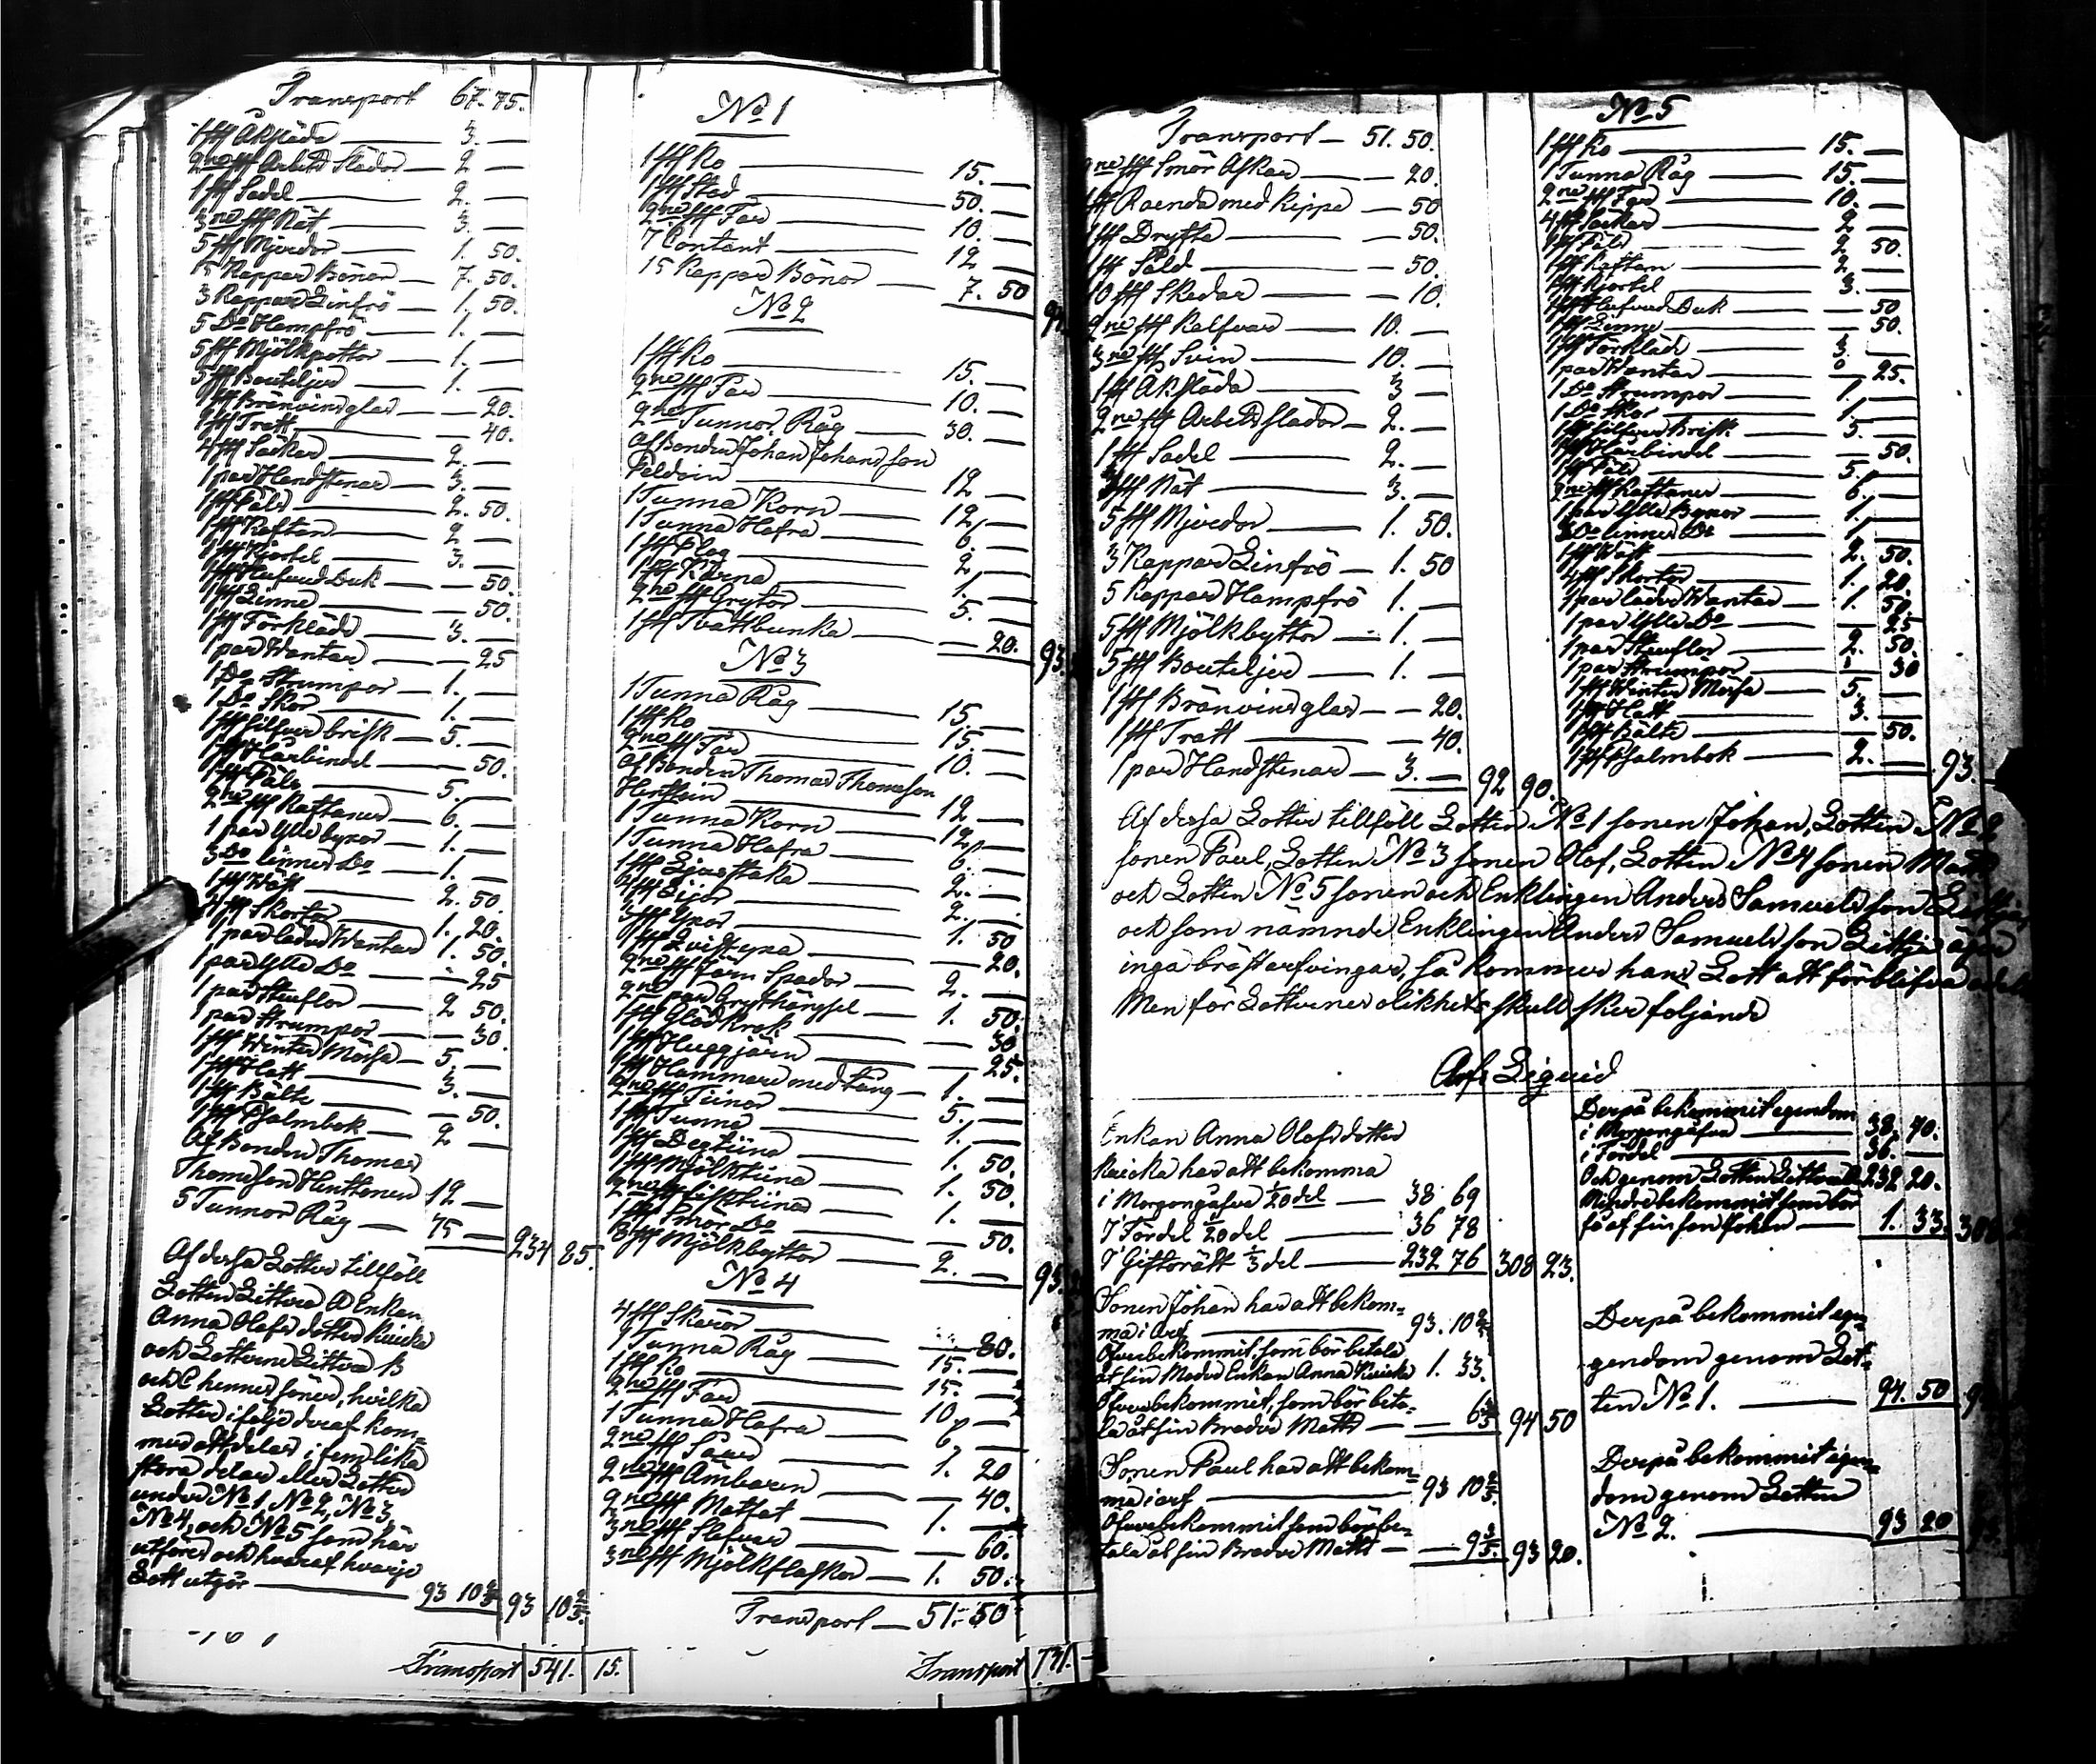 Transport 67. 75.
1 st Åksläda — 3. —
2ne st Arbets Slädor — 2 —
1 st Sadel — 2. —
3ne st Nät — 3. —
5 st Mjerdor — 1. 50.
15 Kappar Bönor — 7. 50.
3 Kappar Linfrö — 1. 50.
5 Do Hampfrö — 1. —
5 st Mjölkpottor — 1. —
5 st Bouteljer — 1. —
1 st Bränvinsglas — — 20.
1 st Tratt — — 40.
4 st Säckar — 2. —
1 par Handstenar — 3. —
1 st Päls — 2. 50.
1 st Kaftan — 2 —
1 st Kjortel — 3. —
1 st Hufvud Duk — — 50.
1 st Linne — — 50.
1 st Förkläde — 3. —
1 par Wantar — — 25
1 Do Strumpor — 1. —
1 Do Skor — 1. —
1 st silfver brisk — 5. —
1 st Hårbindel — — 50.
1 st Päls — 5. —
2ne st Kaftaner — 6. —
1 par Ylle byxor — 1. —
3 Do linner Do — 1. —
1 st Wäst — 2. 50.
4 st Skortor — 1. 20.
1 par läder Wantar — 1. 50.
1 par Ylle Do — — 25
1 par Stuflor — 2 50.
1 par Strumpor — — 30.
1 st Winter Mössa — 5. —
1 st Hatt — 3. —
1 st Bälte — — 50.
1 st Psalmbok — 2 —
Af Bonden Thomas
Thomsson Henttonen 12 —
5 Tunnor Råg — 75 — 234 85.
Af dessa Lotter tillföll
Lotten Littera A Enkan
Anna Olofsdotter Kuicka
och Lotterne Littera B
och C hennes söner, hvilka
Lotter i följe deraf kom-
mer att delas i fem lika
stora delar eller Lotter
under No 1, No 2, No 3,
No 4, och No 5 som här
utföres och hvaraf hvarje
Lott utgör — 93 10 2/5 93 10 2/5.
Transport 541. 15.
No 1
1 st Ko — 15. —
1 st Stod — 50. —
2ne st Får — 10. —
I Contant — 12 —
15 Kappar Bönor — 7. 50
No 2
1 st Ko — 15. —
2ne st Får — 10. —
2ne Tunnor Råg — 30. —
Af Bonden Johan Johansson
Peldoin — 12 —
1 Tunna Korn — 12, —
1 Tunna Hafra — 6. —
1 st Plog — 2, —
1 st Kärna — 1. —
2ne st Grytor — 5. —
1 st Tvättbunke — — 20. 93
No 3
1 Tunna Råg — 15. —
1 st Ko — 15. —
2ne st Får — 10. —
Af Bonden Thomas Thomsson
Henttoin — 12 —
1 Tunna Korn — 12, —
1 Tunna Hafra — 6. —
1 st Ljusstaka — 2. —
4 st Lijor — 2. —
3 st Yxor — 1. 50
1 st Qvistyxa — — 20.
2ne st Järn Spador — 2. —
2ne par Grythängsel — 1. 50.
1 st Glödkrok — — 30
1 st Huggjärn — — 25.
1 st Hammare med tång — 1. —
2ne st Tiinor — 5. —
1 st Tunna — 1. —
1 st Degtiina — 1. 50.
1 st Mjölktiina — 1. 50.
2ne st Fisktiina — 1. —
1 st Smör Do — — 50.
8 st Mjölkbyttor — 2. — 93
No 4
4 st Skäror — — 80.
1 Tunna Råg — 15. —
1 st Ko — 15. —
2ne st Får — 10, —
1 Tunna Hafra — 6, —
2ne st Såar — 1. 20
2ne st Ämbaren — — 40.
2ne st Matfat — 1. —
3ne st Slefvar — — 60.
3ne st Mjölkflaskor — 1. 50.
Transport — 51. 50
Transport 731.
Transport — 51. 50.
2ne st Smör Askar — — 20.
1 st Raenda med Kippa — — 50
1 st Drytta — — 50.
1 st Såld — — 50.
10 st Skedar — — 10.
2ne st Kalfvar — 10. —
3ne st Svin — 10. —
1 st Åksläda — 3 —
2ne st Arbetsslädor — 2. —
1 st Sadel — 2. —
3 st Nät — 3. —
5 st Mjerdor — 1. 50.
3 Kappar Linfrö — 1. 50
5 Kappar Hampfrö 1. —
5 st Mjölkbyttor — 1. —
5 st Bouteljer — 1. —
1 st Bränvinsglas — — 20.
1 st Tratt — — 40.
1 par Handstenar — 3. — 92 90.
No 5
1 st Ko — 15. —
1 Tunna Råg — 15. —
2ne st Får — 10. —
4 st Säckar — 2 —
1 st Päls — 2 50.
1 st Kaftan — 2. —
1 st Kjortel — 3. —
1 st Hufvud Duk — — 50
1 st Linne — — 50.
1 st Förkläde — 3. —
1 par Wantar — — 25.
1 Do Strumpor — 1. —
1 Do Skor — 1. —
1 st silfver Brisk — 5. —
1 st Hårbindel — — 50.
1 st Päls — 5. —
2ne st Kaftaner — 6. —
1 par Ylle Byxor — 1. —
3 Do linner Do — 1. —
1 st Wäst — 2. 50.
4 st Skortor — 1. 20.
1 par läder Wantar — 1. 50.
1 par Ylle Do — — 25
1 par Stuflor — 2. 50.
1 par Strumpor — — 30
1 st Winter Mössa — 5. —
1 st Hatt — 3. —
1 st Bälte — — 50.
1 st Psalmbok — 2. — 93.
Af dessa Lotter tillföll Lotten No 1 sonen Johan, Lotten No 2
sonen Paul, Lotten No 3 sonen Olof, Lotten No 4 sonen Matts
och Lotten No 5 sonen och Enklingen Anders Samuelsson
och som nämnde Enklingen Anders Samuelsson Littja äger
inga bröstarfvingar, så kommer hans Lott att förblifva
Men för Lotternes olikhets skull sker följande
Arfs Liquid
Enkan Anna Olofsdotter
Kuicka har att bekomma
i Morgongåfva 1/20 del — 38 69
I Fördel 1/20 del — 36 78
I Giftorätt 1/3 del — 232 76 308 23.
Derpå bekommit egendom
i Morgongåfva — 38. 70.
i Fördel — 36. —
Och genom Lotten Littera A 232 20.
Mindre bekommit som bör
få af sin son Johan — 1. 33. 308
Sonen Johan har att bekom-
ma i arf — 93. 10 2/5
Öfverbekommit, som bör betala
åt sin Moder Enkan Anna Kuicka 1. 33.
Öfverbekommit, som bör beta-
la åt sin Broder Matts — — 6 3/5 94 50
Derpå bekommit egen-
gendom genom Lot-
ten No 1. — 94. 50
Sonen Paul har att bekom-
ma i arf — 93 10 2/5.
Öfverbekommit som bör be-
tala åt sin Broder Matts — — 9 3/5. 93 20.
Derpå bekommit egen-
dom genom Lotten
No 2. — 93 20